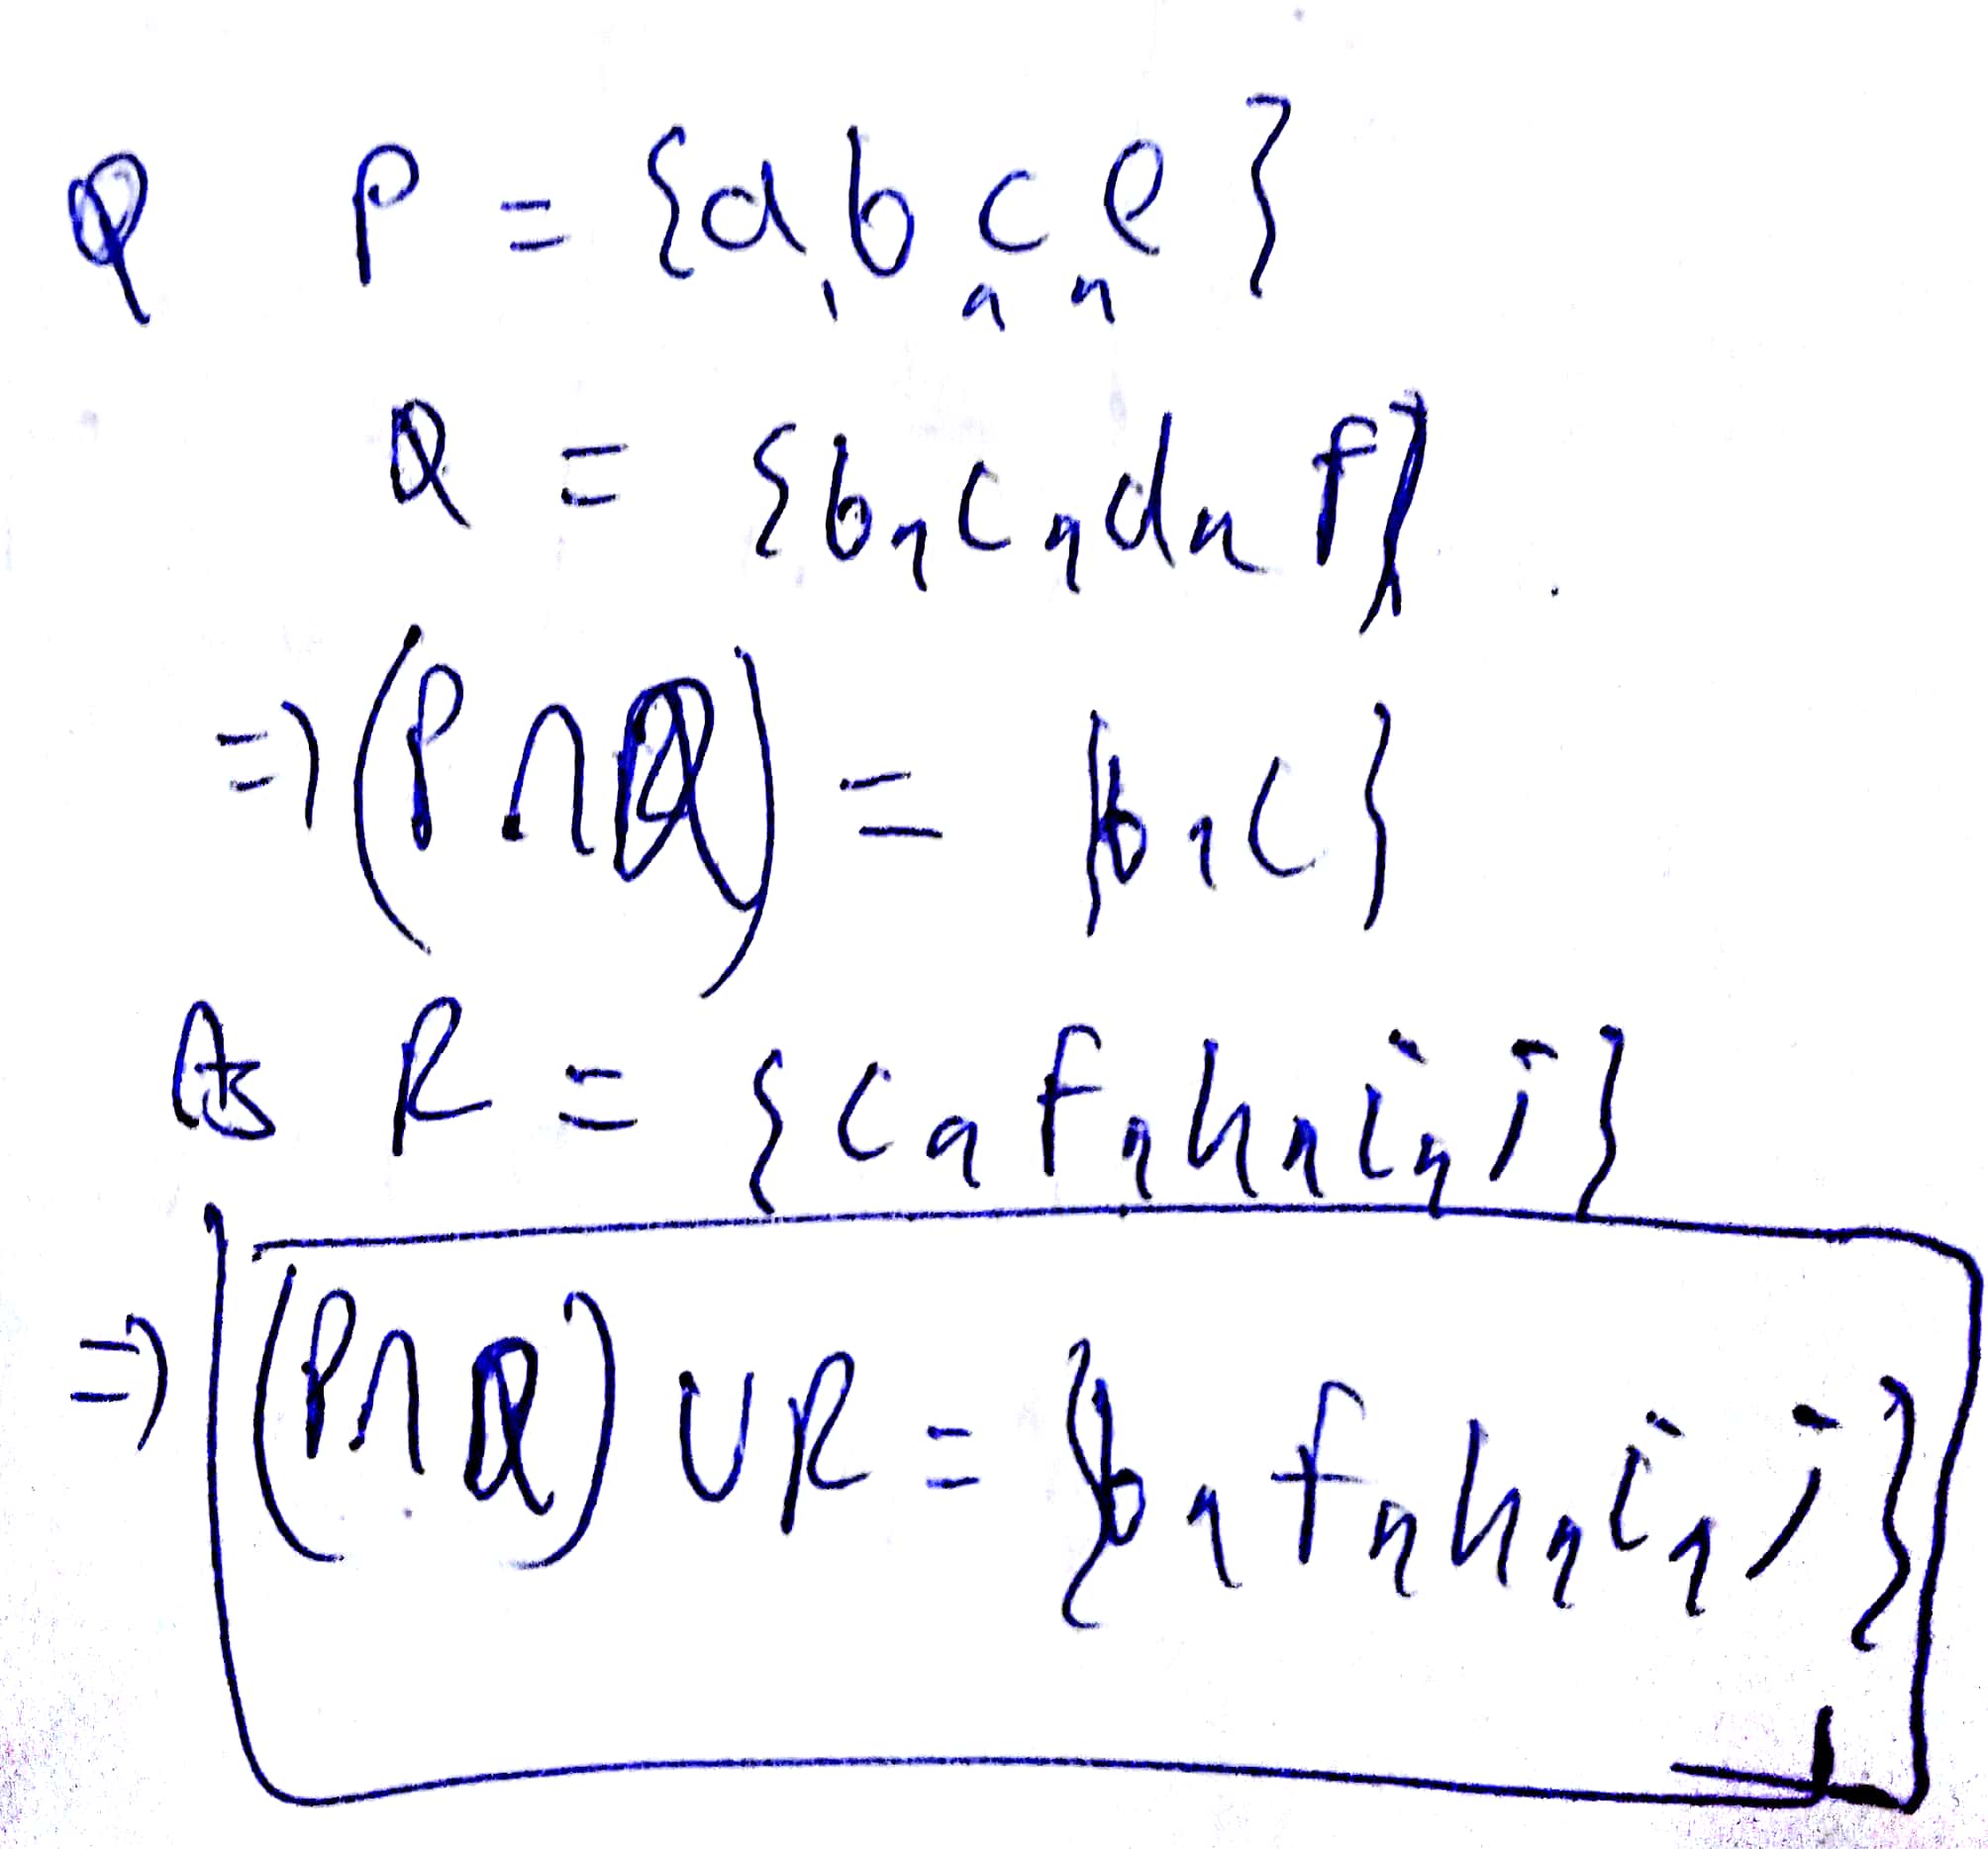 Q P = {a, b, c, e}
Q = {b, c, d, f}
⇒ (P ∩ Q) = {b, c}
As R = {c, f, h, i, j}
⇒ (P ∩ Q) ∪ R = {b, f, h, i, j}